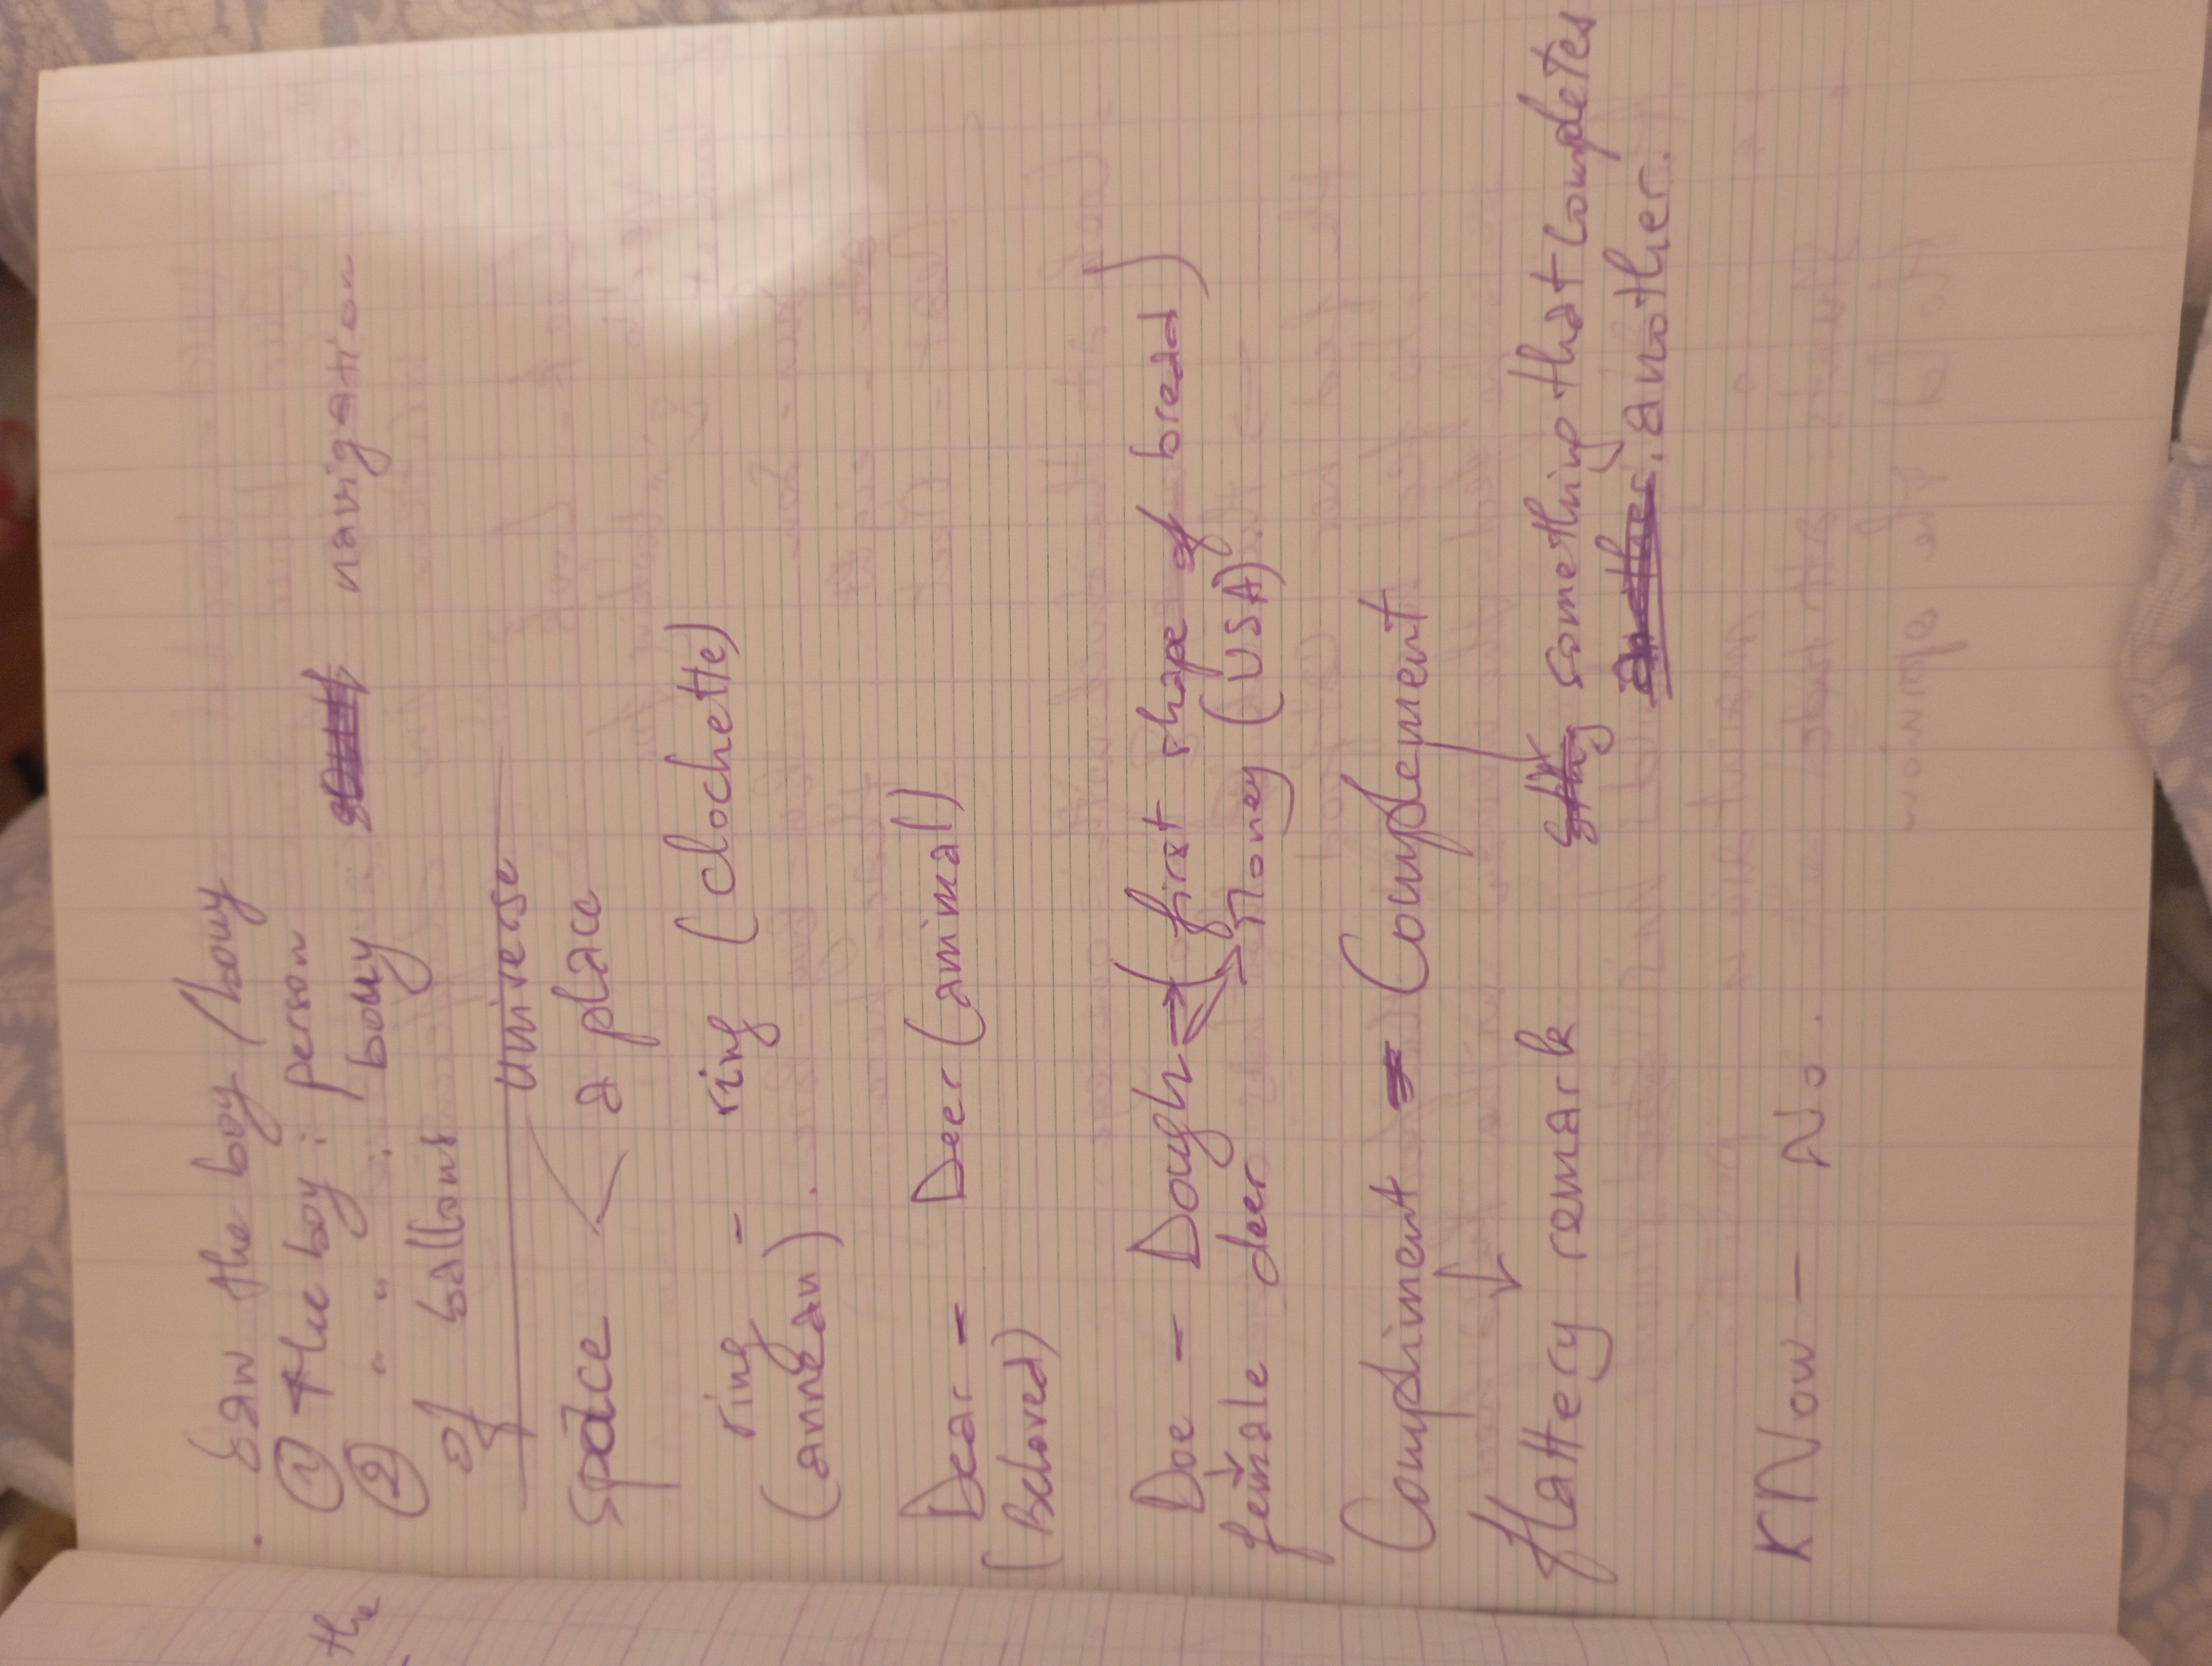 . saw the boy / bouy
① the boy : person
② " " : bouy navigation
of ballons
universe
space < a place
ring - ring (clochette)
(anneau).
Dear - Deer (animal)
(beloved)
Doe - Dough → (first shape of bread)
female deer → Money (USA).
Compliment = Complement
flattery remark something that completes
another.
KNow - No.
the